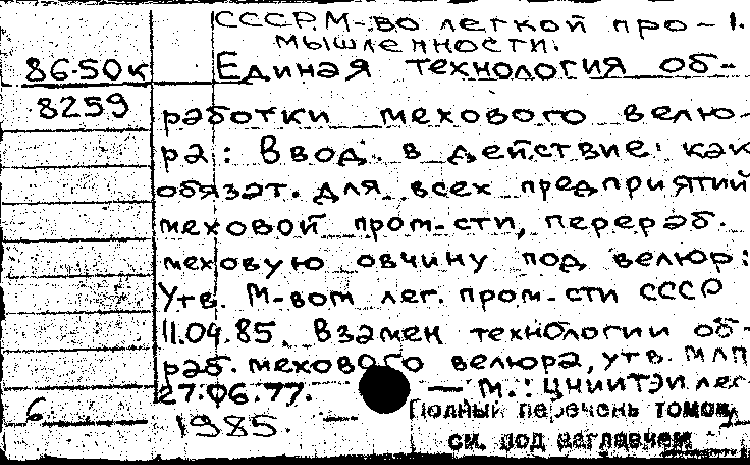 СССР. М-во легкой про- 1.
мышленности.
86-50к Единая технология об-
8259 работки мехового велю-
ра: Ввод. в действие как
обязат. для всех предприятий
меховой пром-сти, перераб.
меховую овчину под велюр:
Утв. М-вом лег. пром-сти СССР
11.04.85. Взамен технологии об-
раб. мехового велюра, утв. МЛП
27.06.77. — М.: ЦНИИТЭИлег
6 1985. — Полный перечень томов
см. под заглавием